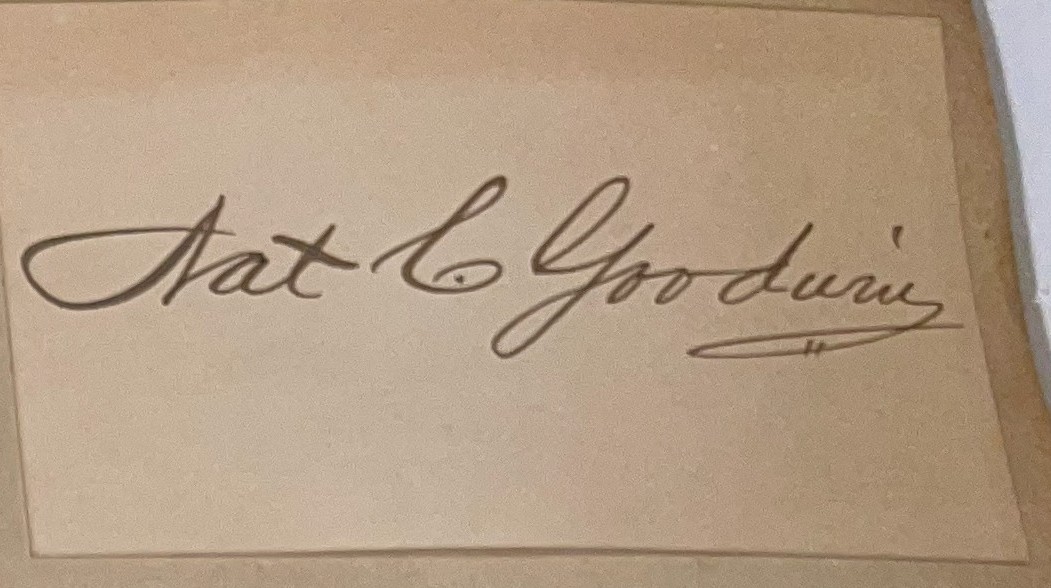 Nat C. Goodwin